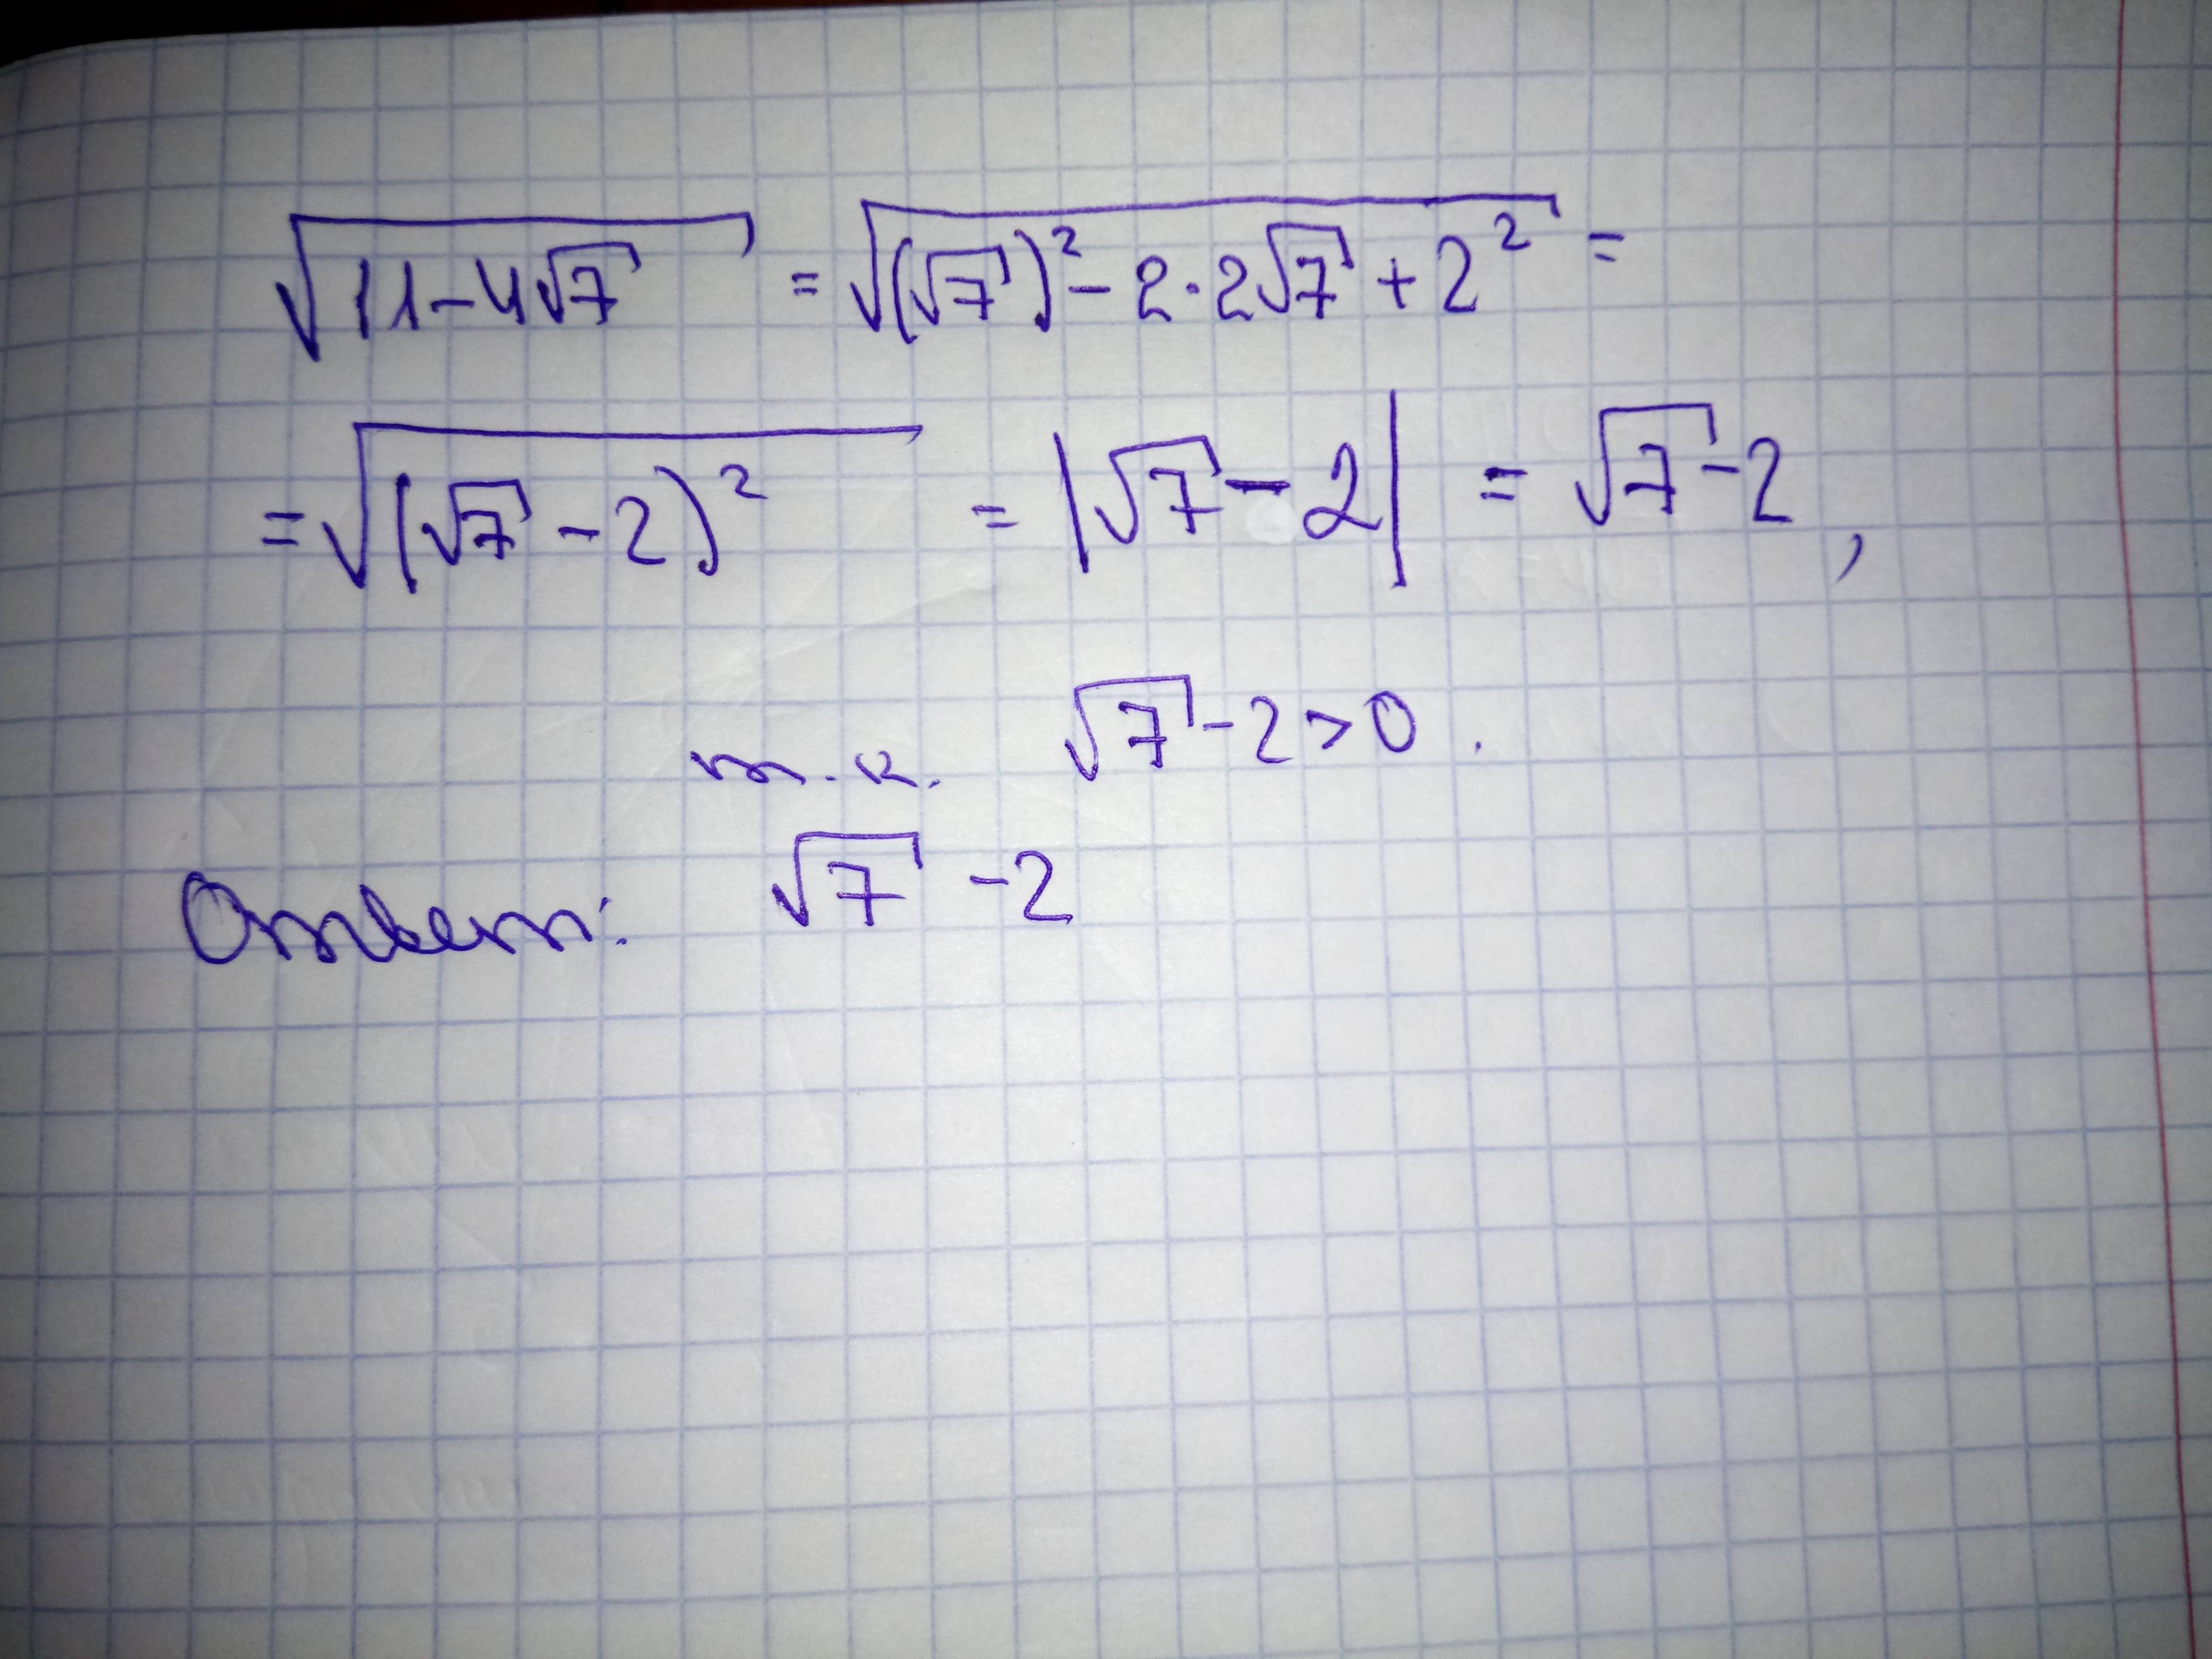 √(11-4√7) = √((√7)² - 2·2√7 + 2²) =
= √((√7 - 2)²) = |√7 - 2| = √7 - 2,
т.к. √7 - 2 > 0.
Ответ: √7 - 2